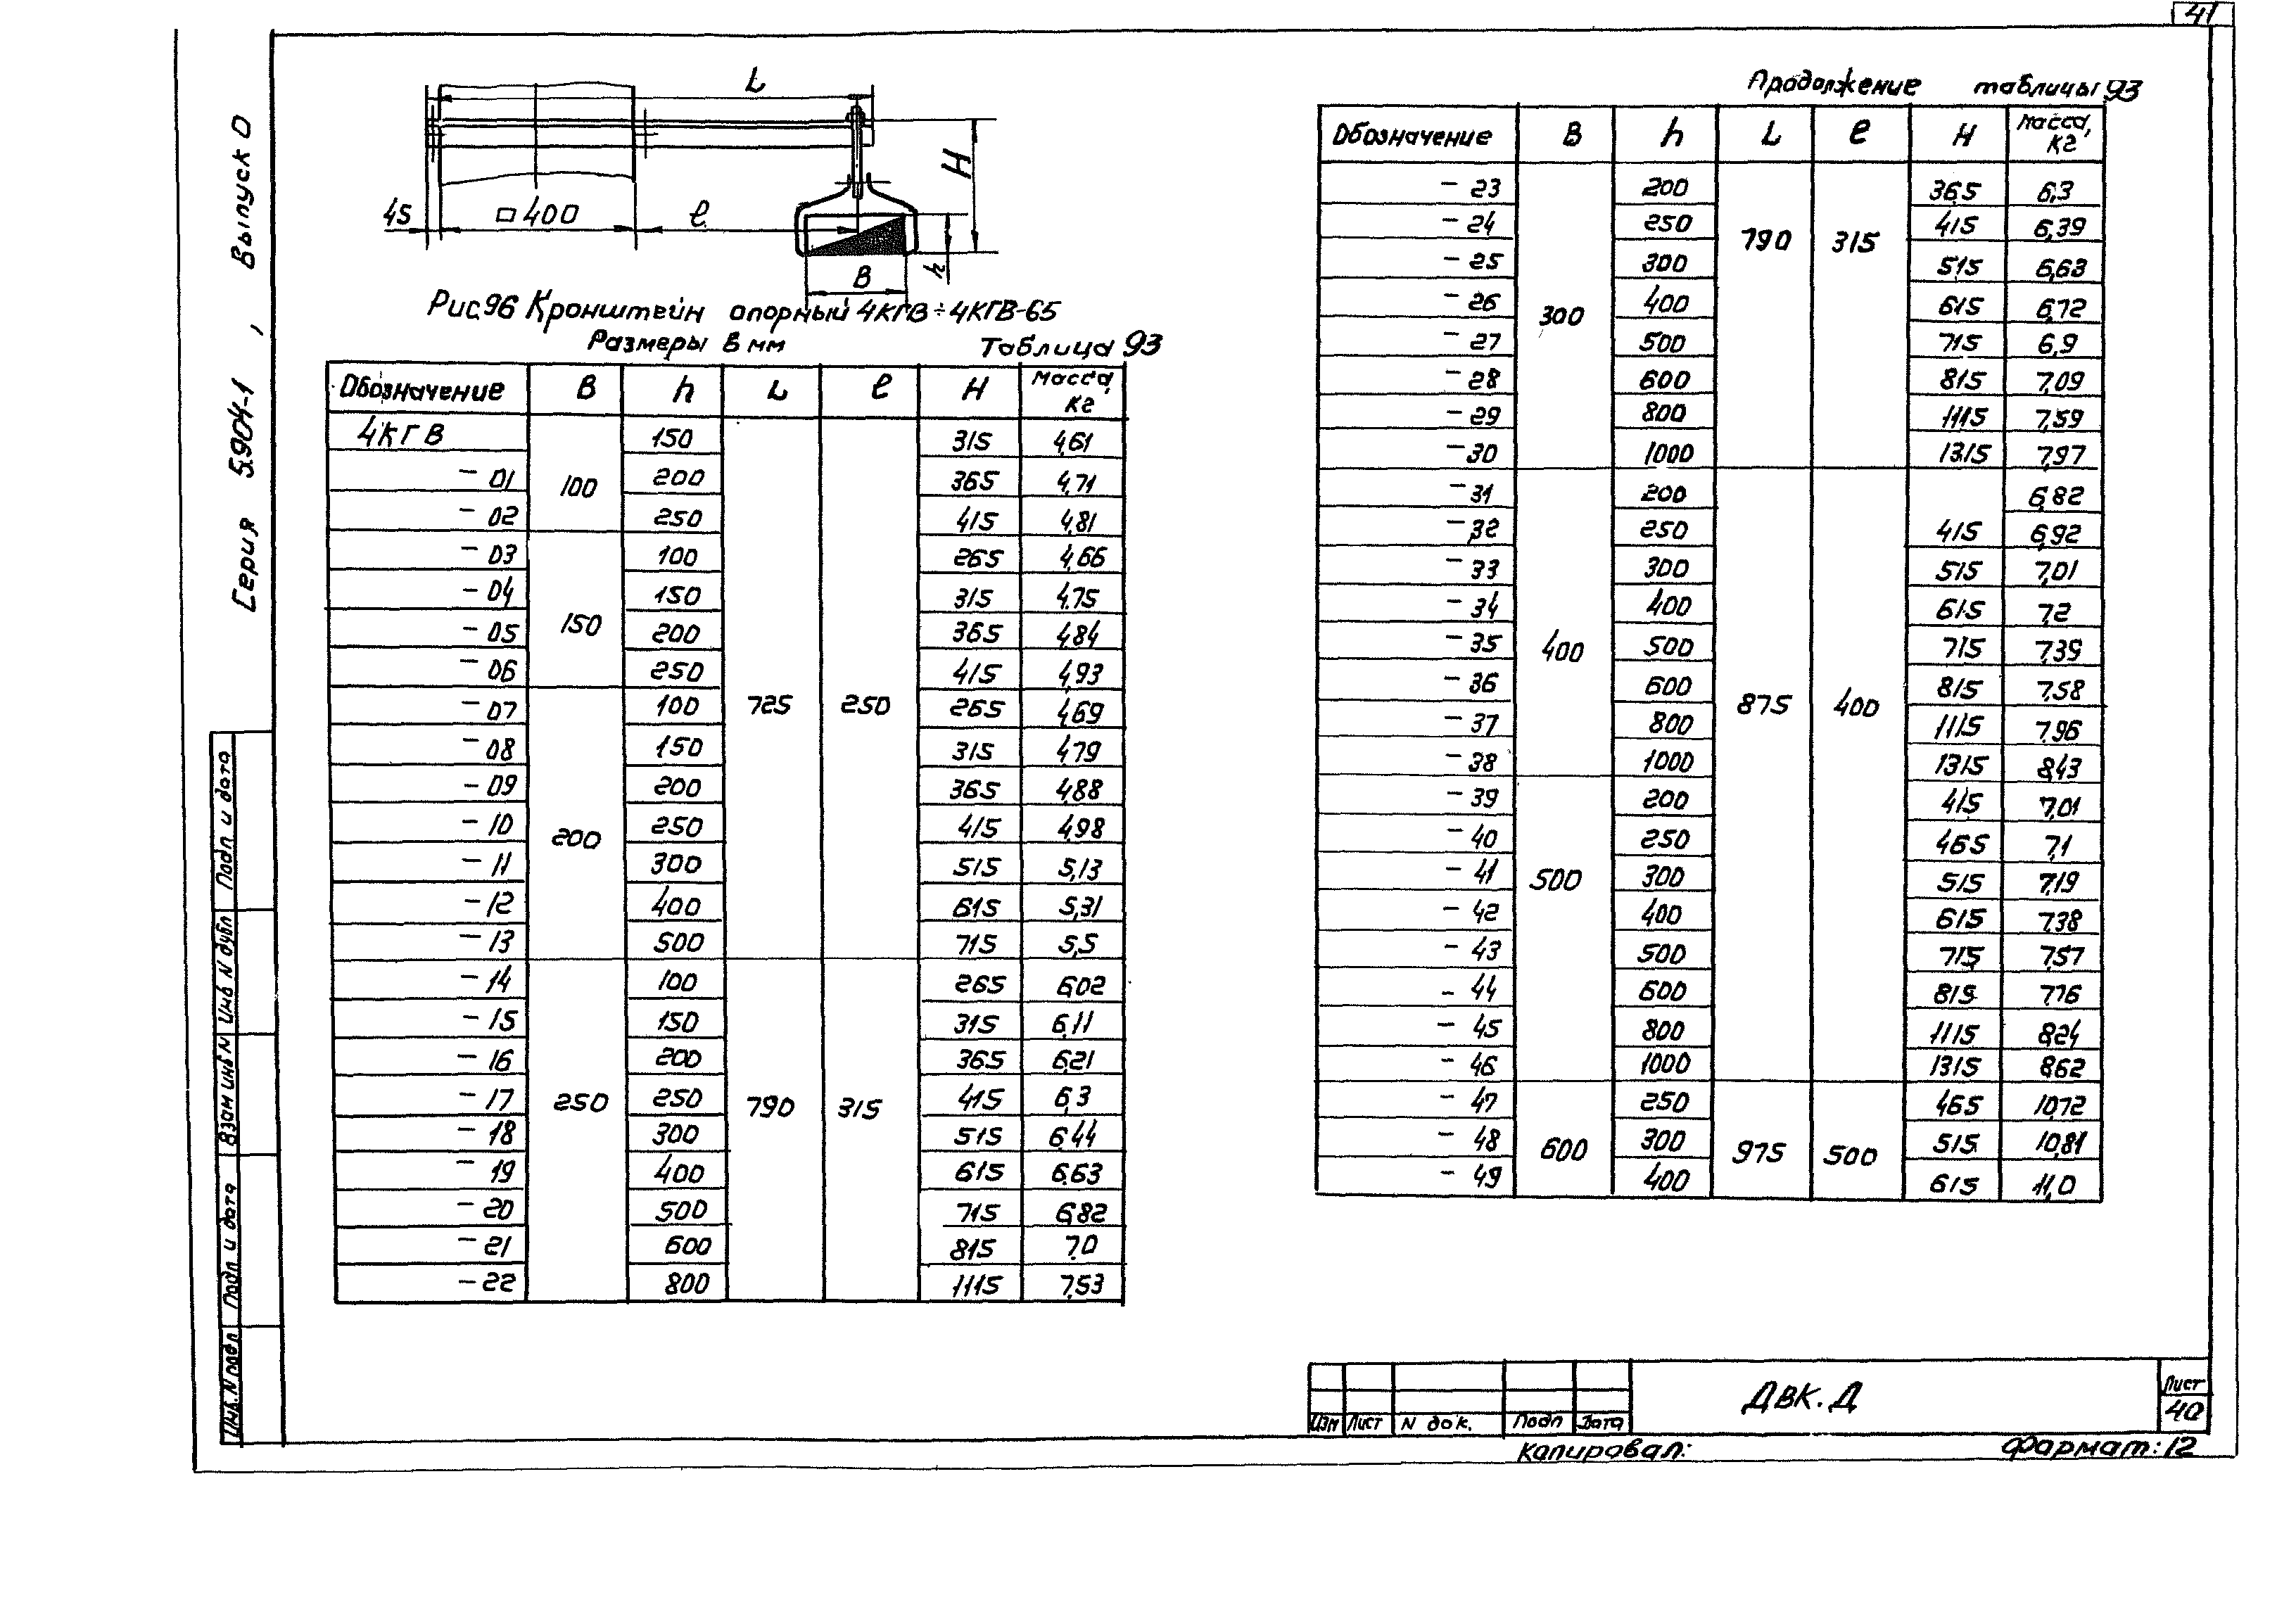 41
Серия 5.904-1 , Выпуск 0
L
H
45 □400 l
h
B
Рис.96 Кронштейн опорный 4КГВ÷4КГВ-65
Размеры в мм Таблица 93
Обозначение B h L l H Масса, кг
4КГВ 100 150 725 250 315 4,61
-01 200 365 4,71
-02 250 415 4,81
-03 150 100 265 4,66
-04 150 315 4,75
-05 200 365 4,84
-06 250 415 4,93
-07 200 100 265 4,69
-08 150 315 4,79
-09 200 365 4,88
-10 250 415 4,98
-11 300 515 5,13
-12 400 615 5,31
-13 500 715 5,5
-14 250 100 790 315 265 6,02
-15 150 315 6,11
-16 200 365 6,21
-17 250 415 6,3
-18 300 515 6,44
-19 400 615 6,63
-20 500 715 6,82
-21 600 815 7,0
-22 800 1115 7,53
Продолжение таблицы 93
Обозначение B h L l H Масса, кг
-23 300 200 790 315 365 6,3
-24 250 415 6,39
-25 300 515 6,63
-26 400 615 6,72
-27 500 715 6,9
-28 600 815 7,09
-29 800 1115 7,59
-30 1000 1315 7,97
-31 400 200 875 400 6,82
-32 250 415 6,92
-33 300 515 7,01
-34 400 615 7,2
-35 500 715 7,39
-36 600 815 7,58
-37 800 1115 7,96
-38 1000 1315 8,43
-39 500 200 415 7,01
-40 250 465 7,1
-41 300 515 7,19
-42 400 615 7,38
-43 500 715 7,57
-44 600 815 7,76
-45 800 1115 8,24
-46 1000 1315 8,62
-47 600 250 975 500 465 10,72
-48 300 515 10,81
-49 400 615 11,0
Инв.N подл Подп и дата Взам инв N Инв N дубл Подп и дата
Изм Лист N док. Подп Дата
ДВК.Д
Лист
40
Копировал:
Формат: 12